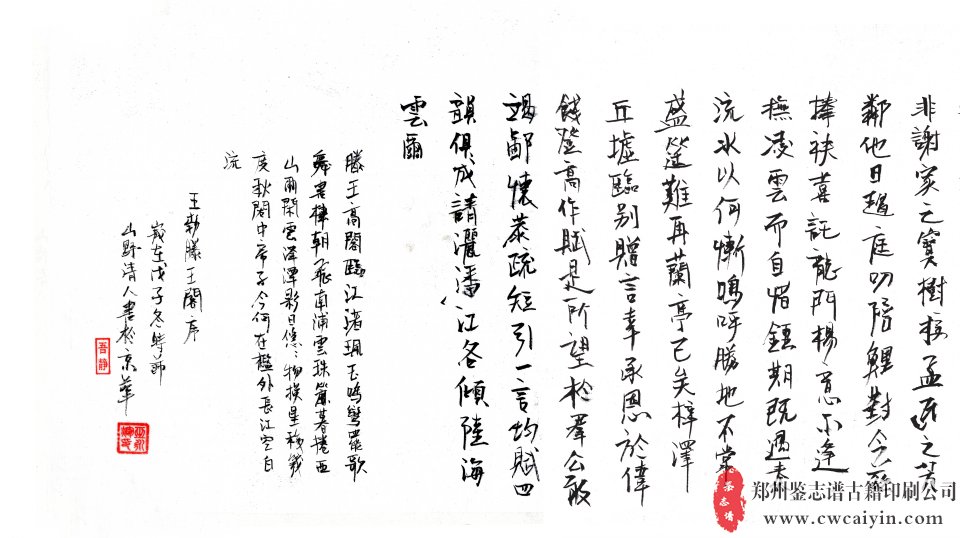 非謝家之寶樹接孟氏之芳
鄰他日趨庭叨陪鯉對今
捧袂喜託龍門楊意不逢
撫凌雲而自惜鍾期既遇奏
流水以何慚嗚呼勝地不常
盛筵難再蘭亭已矣梓澤
丘墟臨別贈言幸承恩於偉
餞登高作賦是所望於羣公敢
竭鄙懷恭疏短引一言均賦四
韻俱成請灑潘江各傾陸海
雲爾
滕王高閣臨江渚珮玉鳴鸞罷歌
舞畫棟朝飛南浦雲珠簾暮捲西
山雨閑雲潭影日悠〻物換星移幾
度秋閣中帝子今何在檻外長江空自
流
王勃滕王閣序
歲在戊子冬時節
山野清人書於京華
吾靜
鉴志谱
郑州鉴志谱古籍印刷公司
www.cwcaiyin.com